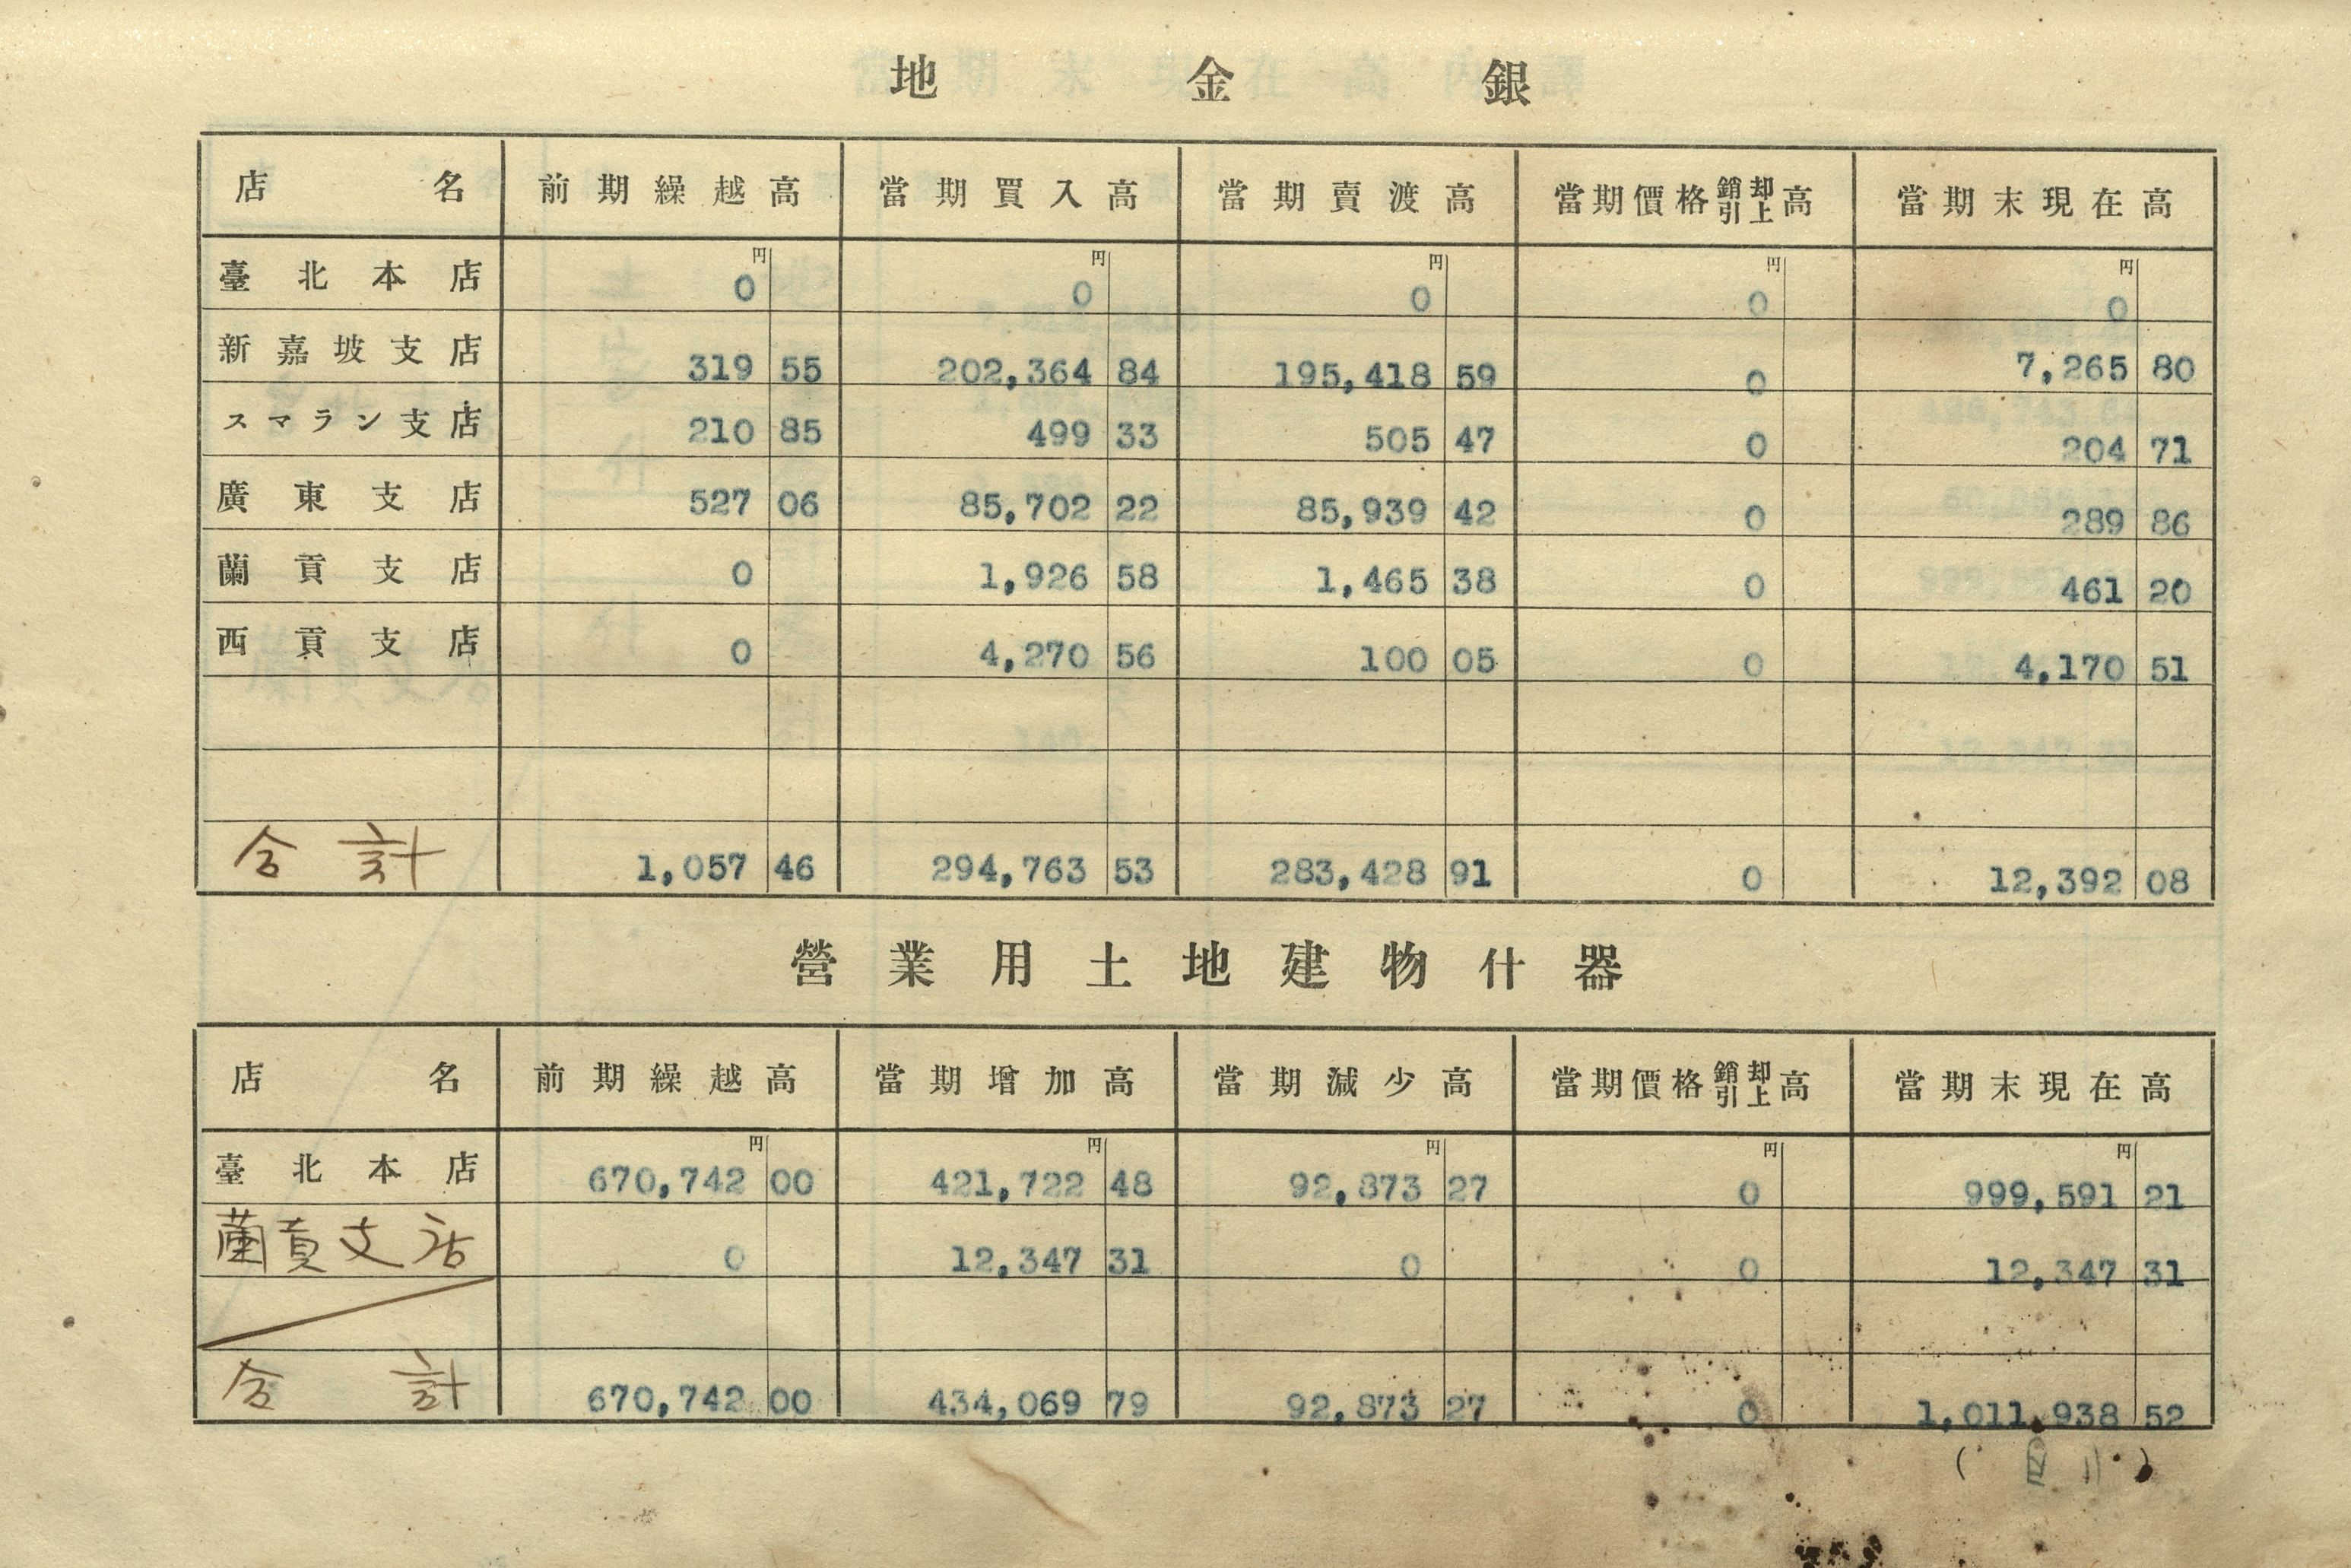 地金銀
店名 前期繰越高 當期買入高 當期賣渡高 當期價格銷却引上高 當期末現在高
円 円 円 円 円
臺北本店 0 0 0 0 0
新嘉坡支店 319 55 202,364 84 195,418 59 0 7,265 80
スマラン支店 210 85 499 33 505 47 0 204 71
廣東支店 527 06 85,702 22 85,939 42 0 289 86
蘭貢支店 0 1,926 58 1,465 38 0 461 20
西貢支店 0 4,270 56 100 05 0 4,170 51
合計 1,057 46 294,763 53 283,428 91 0 12,392 08
營業用土地建物什器
店名 前期繰越高 當期增加高 當期減少高 當期價格銷却引上高 當期末現在高
円 円 円 円 円
臺北本店 670,742 00 421,722 48 92,873 27 0 999,591 21
蘭貢支店 0 12,347 31 0 0 12,347 31
合計 670,742 00 434,069 79 92,873 27 0 1,011,938 52